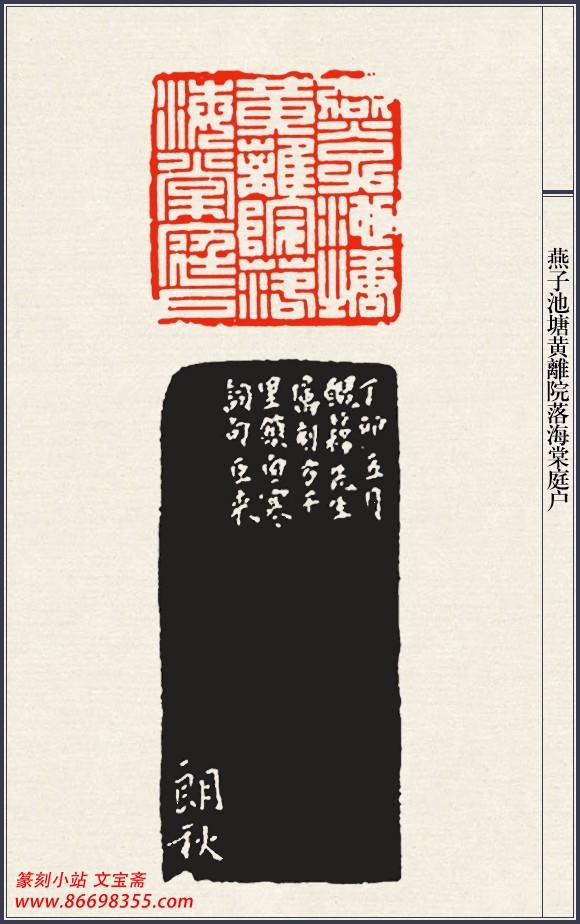 燕子池塘
黄離院落
海棠庭户
燕子池塘黄離院落海棠庭户
丁卯五月
先生
属刻方千
里窗寒
詞句巨来
朗秋
篆刻小站 文宝斋
www.86698355.com